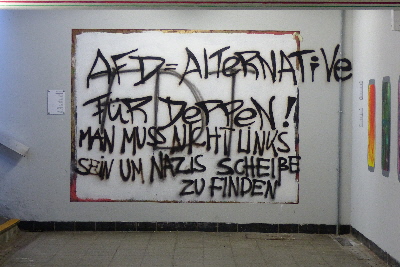 AFD = ALTERNATIVE
FÜR DEPPEN!
MAN MUSS NICHT LINKS
SEIN UM NAZIS SCHEIßE
ZU FINDEN